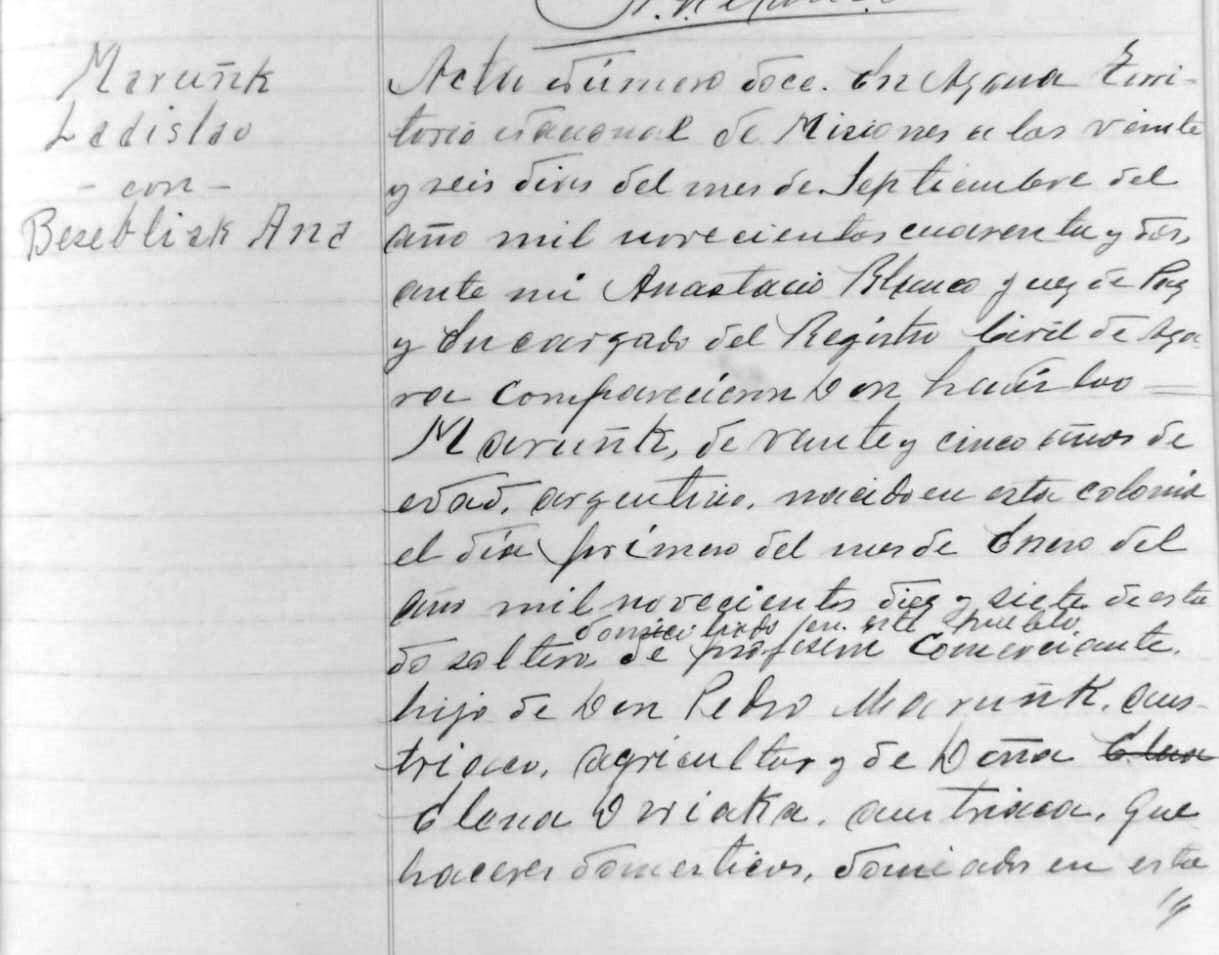 Maruñk
Ladislao
- con -
Beseblisk Ana
Acta número doce. En Azara Terri-
torio nacional de Misiones a los veinte
y seis dias del mes de Septiembre del
año mil novecientos cuarenta y dos,
ante mi Anastacio Blanco Juez de Paz
y Encargado del Registro Civil de Aza-
ra comparecieron Don Ladislao
Maruñk, de veinte y cinco años de
edad, argentino, nacido en esta colonia
el día primero del mes de Enero del
año mil novecientos diez y siete de esta
domiciliado en este pueblo
do soltero de profesion Comerciante.
hijo de Don Pedro Maruñk, aus-
triaco, agricultor y de Doña
Elena Driaka, austriaca, que
haceres domesticos, domiados en esta